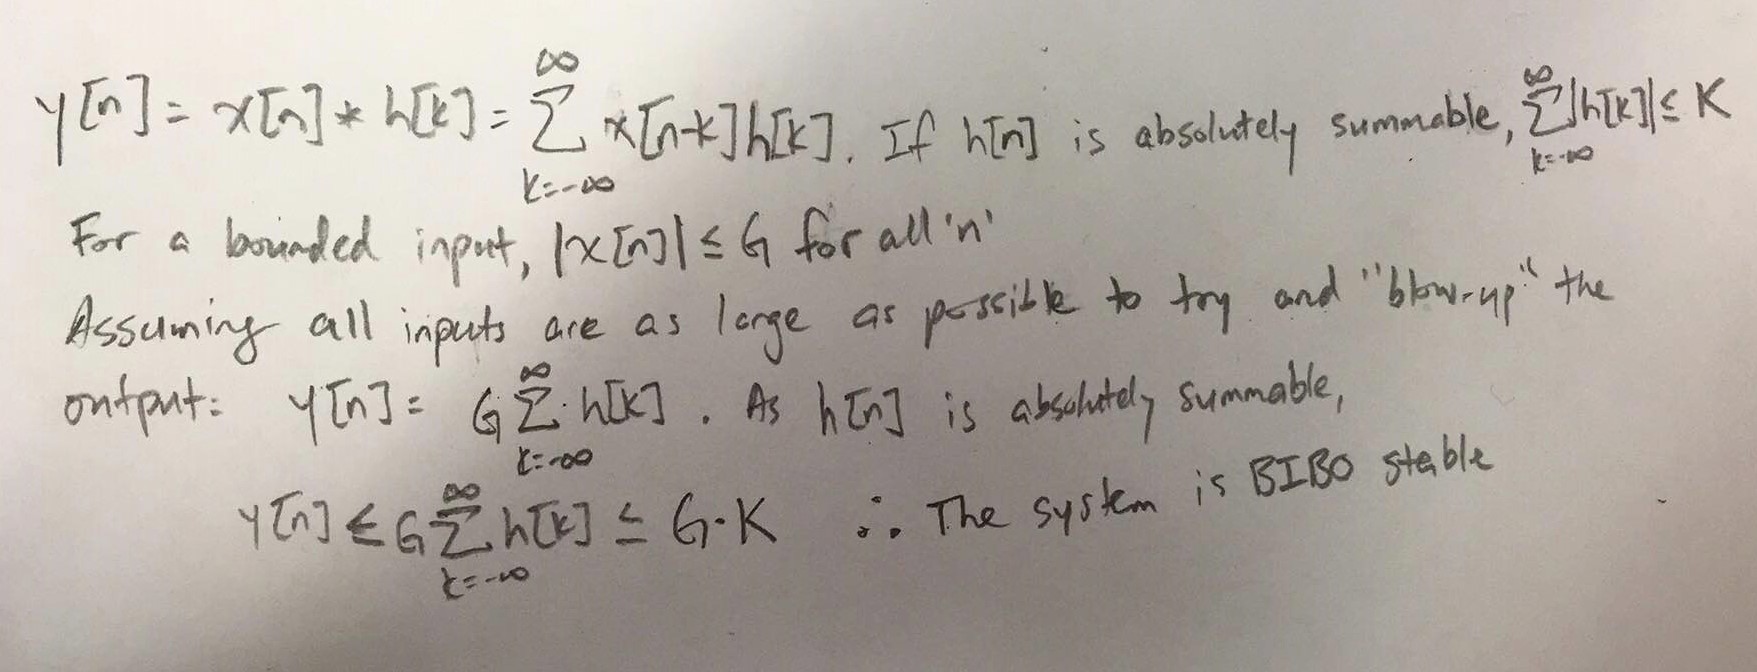 y[n] = x[n] * h[k] = ∑_{k=-∞}^{∞} x[n-k]h[k]. If h[n] is absolutely summable, ∑_{k=-∞}^{∞} |h[k]| ≤ K
For a bounded input, |x[n]| ≤ G for all 'n'
Assuming all inputs are as large as possible to try and "blow-up" the
output: y[n] = G ∑_{k=-∞}^{∞} h[k]. As h[n] is absolutely summable,
y[n] ≤ G ∑_{k=-∞}^{∞} h[k] ≤ G·K ∴ The system is BIBO stable